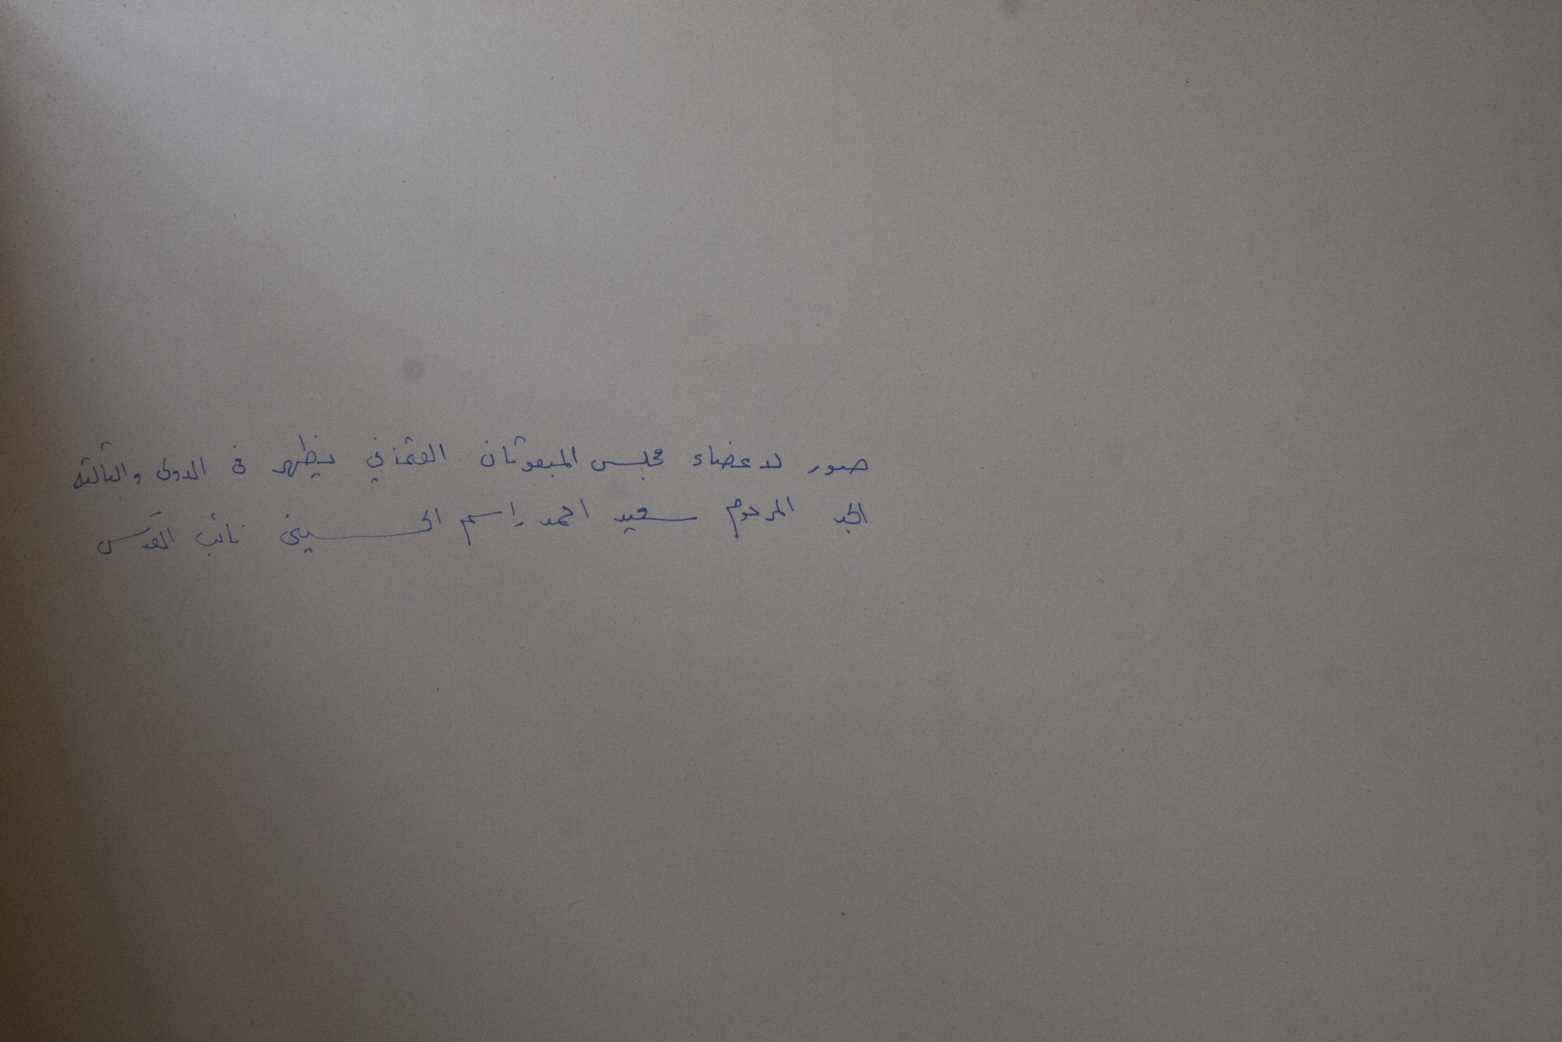 صور لاعضاء مجلس المبعوثان العثماني يظهر في الاولى والثالثة
الجد المرحوم سعيد احمد راسم الحسيني نائب القدس